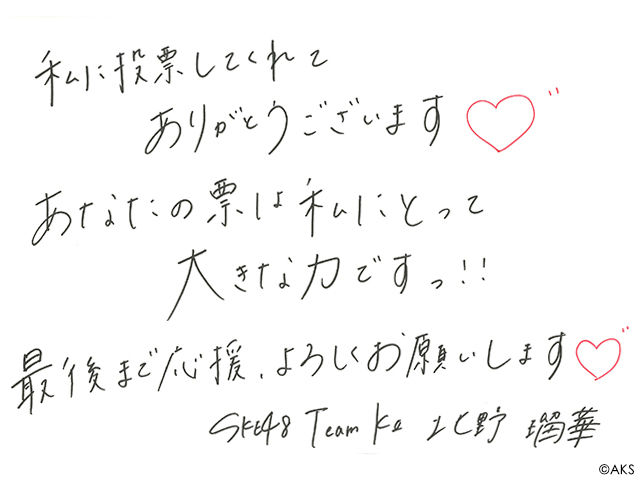 私に投票してくれて
ありがとうございます♡
あなたの票は私にとって
大きな力ですっ!!
最後まで応援、よろしくお願いします♡
SKE48 Team KⅡ 北野 瑠華
©AKS